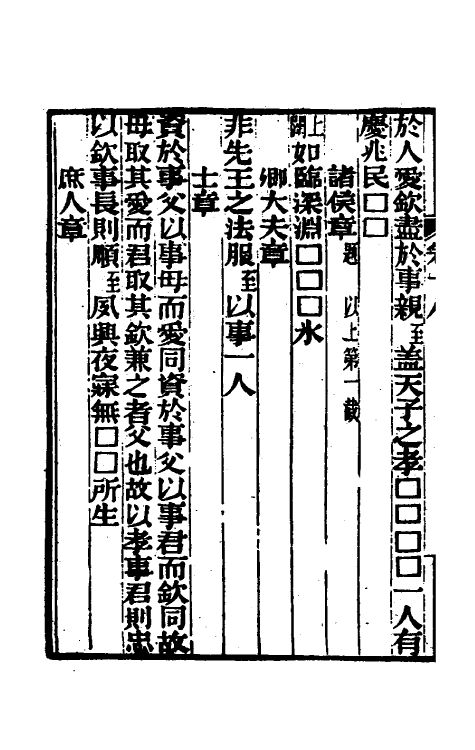 於人愛欽盡於事親至盖天子之孝□□□□一人有
慶兆民□□
諸侯章題 以上第一截
上闕如臨深淵□□□氷
卿大夫章
非先王之法服至以事一人
士章
資於事父以事母而愛同資於事父以事君而欽同故
母取其愛而君取其欽兼之者父也故以孝事君則忠
以欽事長則順至夙興夜寐無□□所生
庶人章